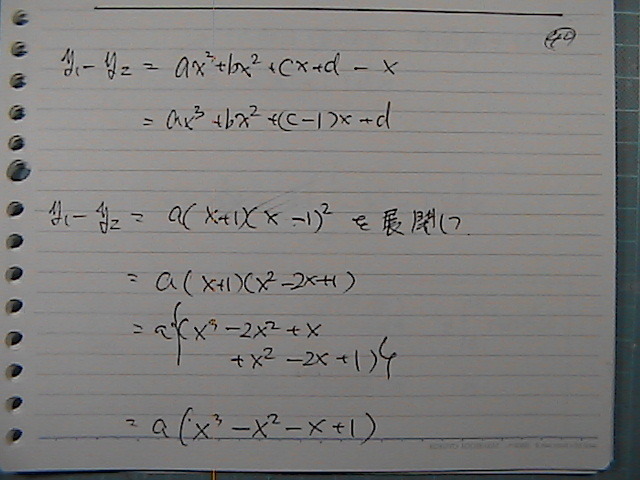 y₁ - y₂ = ax³+bx²+cx+d - x
= ax³+bx²+(c-1)x+d
y₁ - y₂ = a(x+1)(x-1)² を展開して
= a(x+1)(x²-2x+1)
= a{(x³-2x²+x
+x²-2x+1)}
= a(x³-x²-x+1)